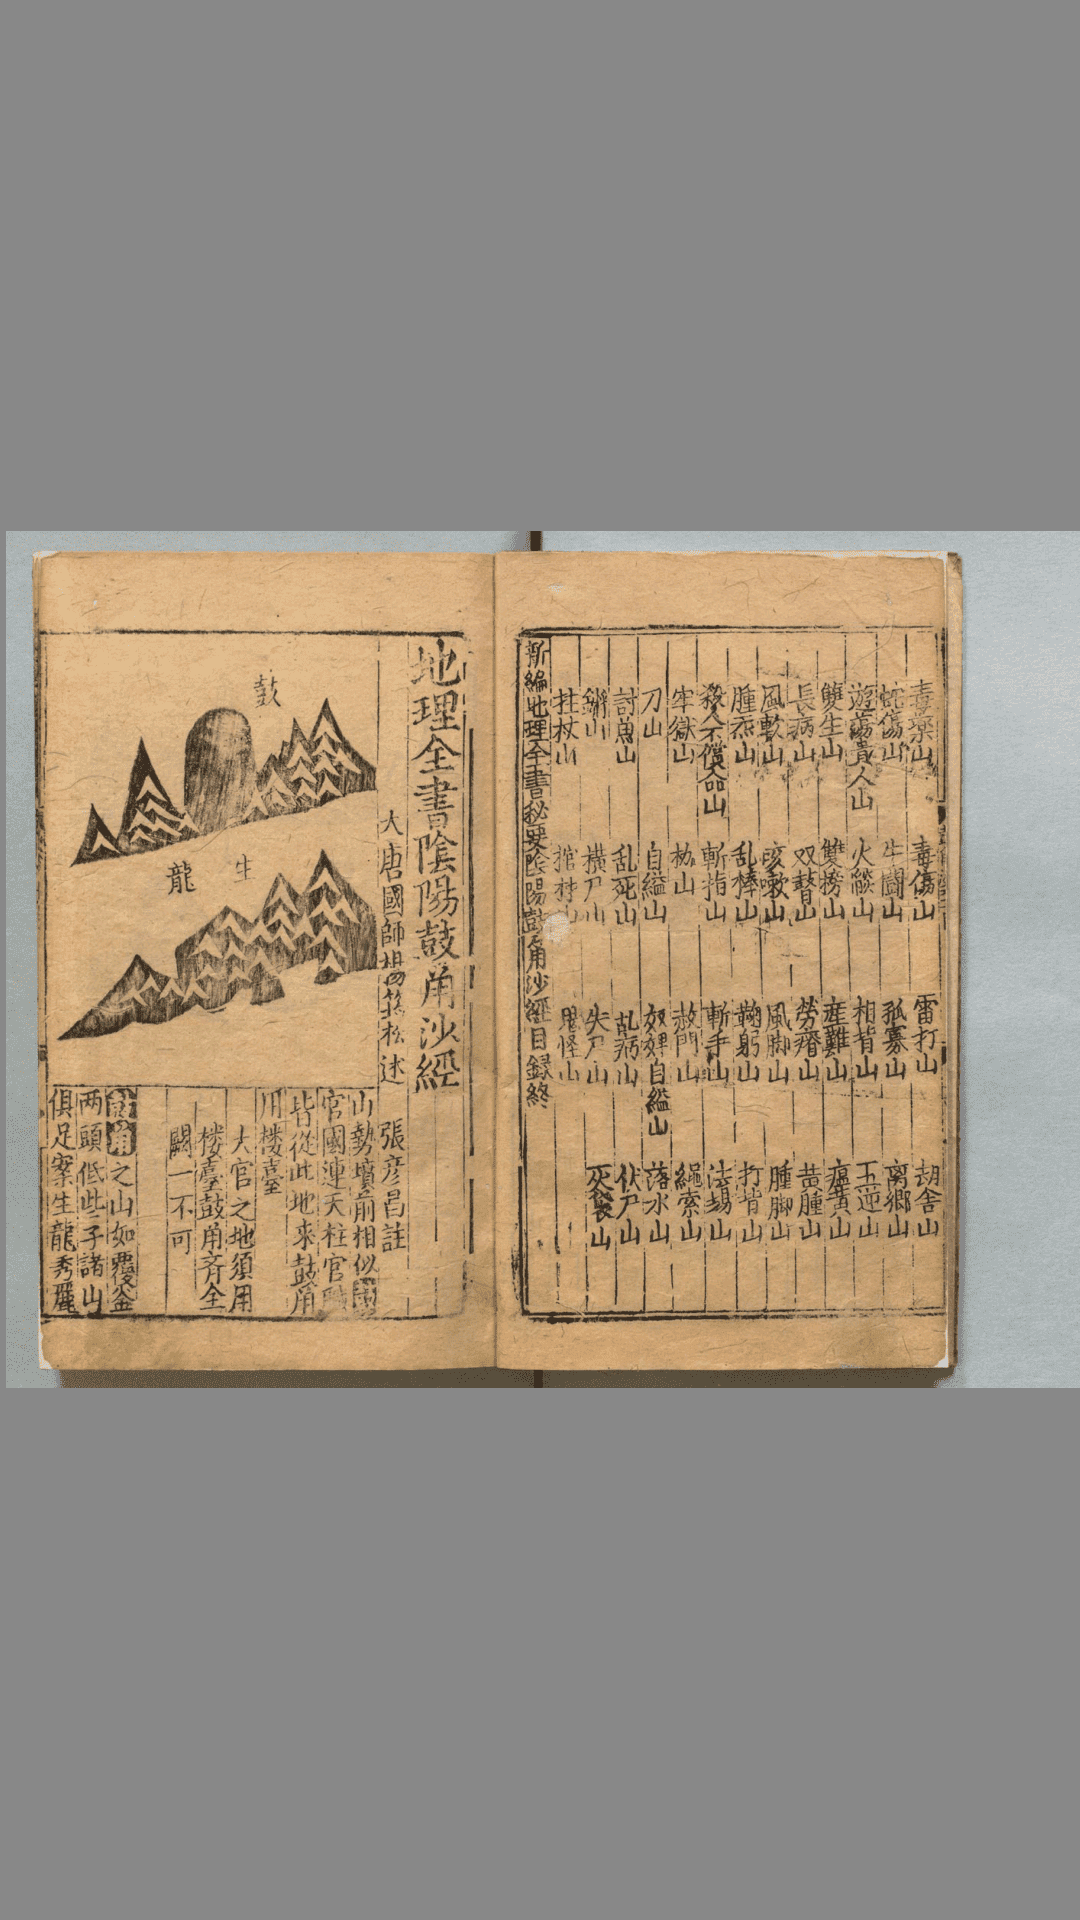 毒藥山　毒傷山　雷打山　刼舍山
蛇傷山　牛鬪山　孤寡山　离鄉山
遊蕩貴人山　火燄山　相背山　五逆山
雙生山　雙撈山　産難山　瘟黄山
長病山　双瞽山　勞瘠山　黄腫山
風軟山　咳嗽山　風脚山　腫脚山
腫山　乱棒山　鞠躬山　打背山
殺人不償命山　斬指山　斬手山　法場山
牢獄山　枷山　赦門山　繩索山
刀山　自縊山　奴婢自縊山　落水山
討魚山　乱死山　乱病山　伏尸山
山　横尸山　失尸山　灰袋山
拄杖山　棺材山　鬼怪山
新編地理全書秘要陰陽鼓角沙經目録終
地理全書陰陽鼓角沙經
大唐國師楊筠松述
張彦昌註
鼓
生
龍
山勢墳前相似
官國連天柱官職
皆從此地来鼓角
用楼臺
大官之地須用
楼臺鼓角斉全
闕一不可
鼓角之山如覆釜
两頭低些子諸山
俱足案生龍秀麗